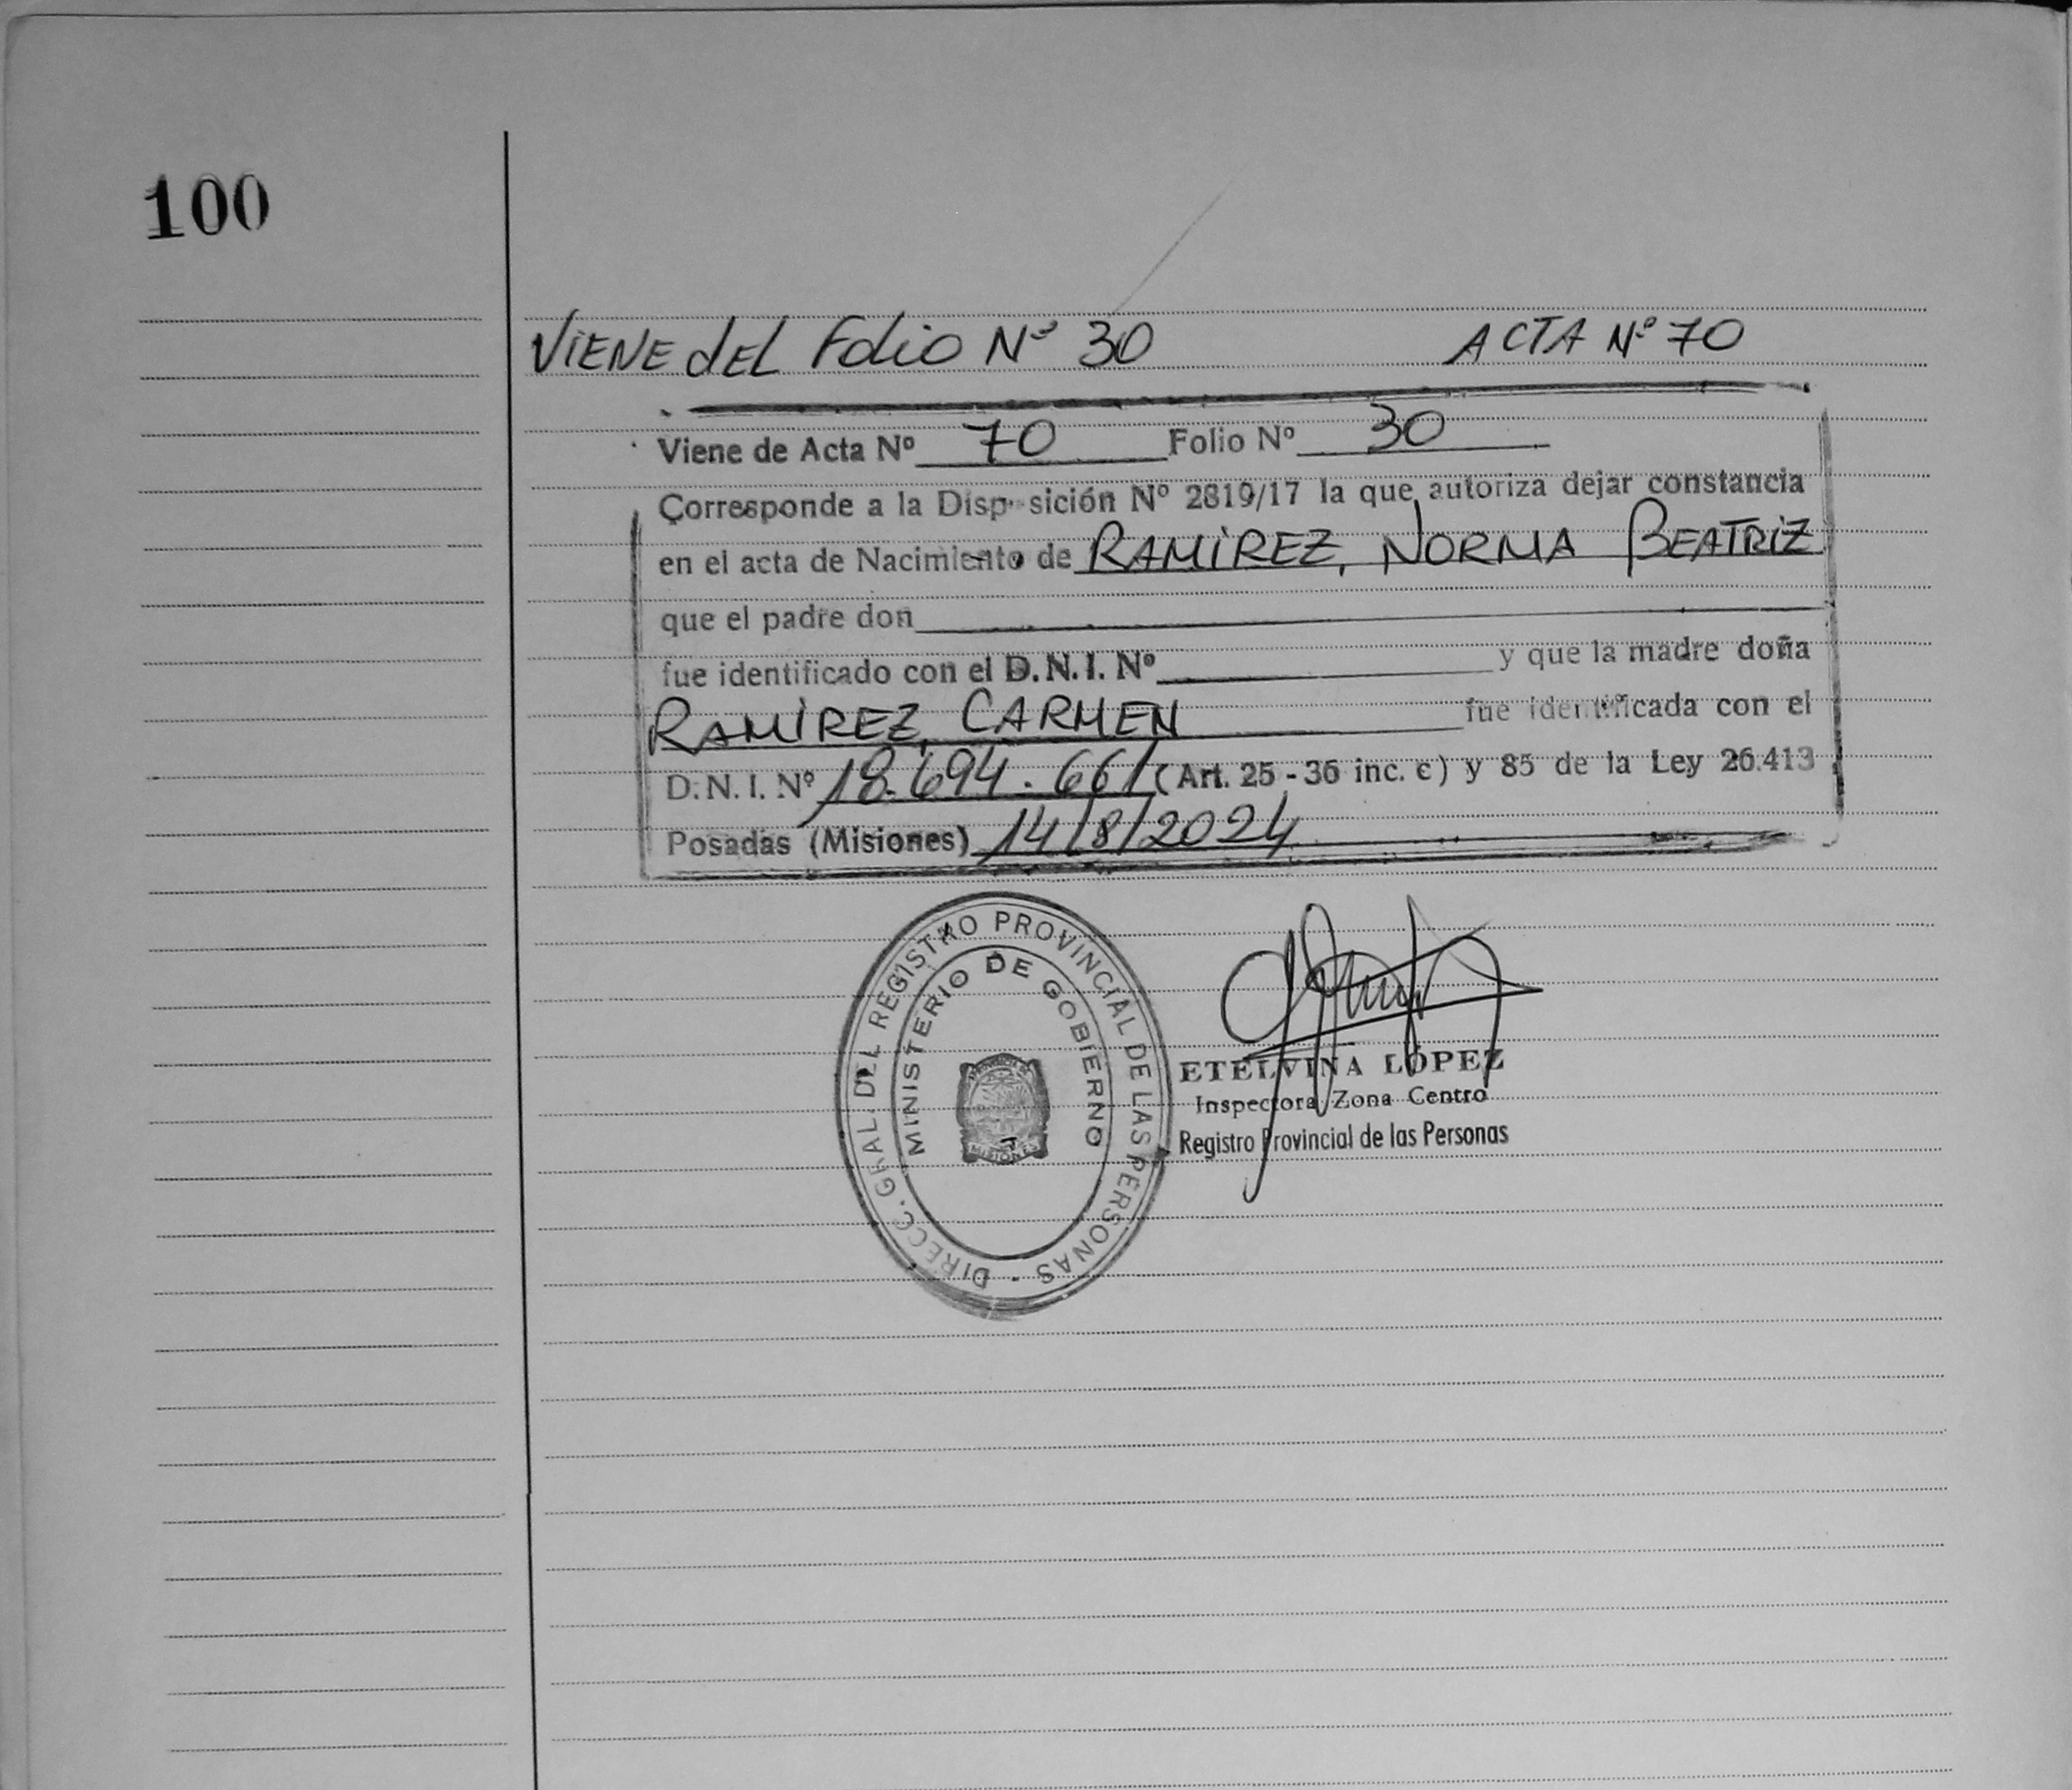 100
VIENE dEL Folio Nº 30 ACTA Nº 70
Viene de Acta Nº 70 Folio Nº 30
Corresponde a la Disp sición Nº 2819/17 la que autoriza dejar constancia
en el acta de Nacimiento de RAMIREZ, NORMA BEATRIZ
que el padre don
fue identificado con el D.N.I. Nº y que la madre doña
RAMIREZ, CARMEN fue identificada con el
D.N.I. Nº 18.694.661 (Art. 25 - 36 inc. c) y 85 de la Ley 26.413
Posadas (Misiones) 14/8/2024
DIRECC. GRAL. DEL REGISTRO PROVINCIAL DE LAS PERSONAS -
MINISTERIO DE GOBIERNO
MISIONES
ETELVINA LOPEZ
Inspectora Zona Centro
Registro Provincial de las Personas